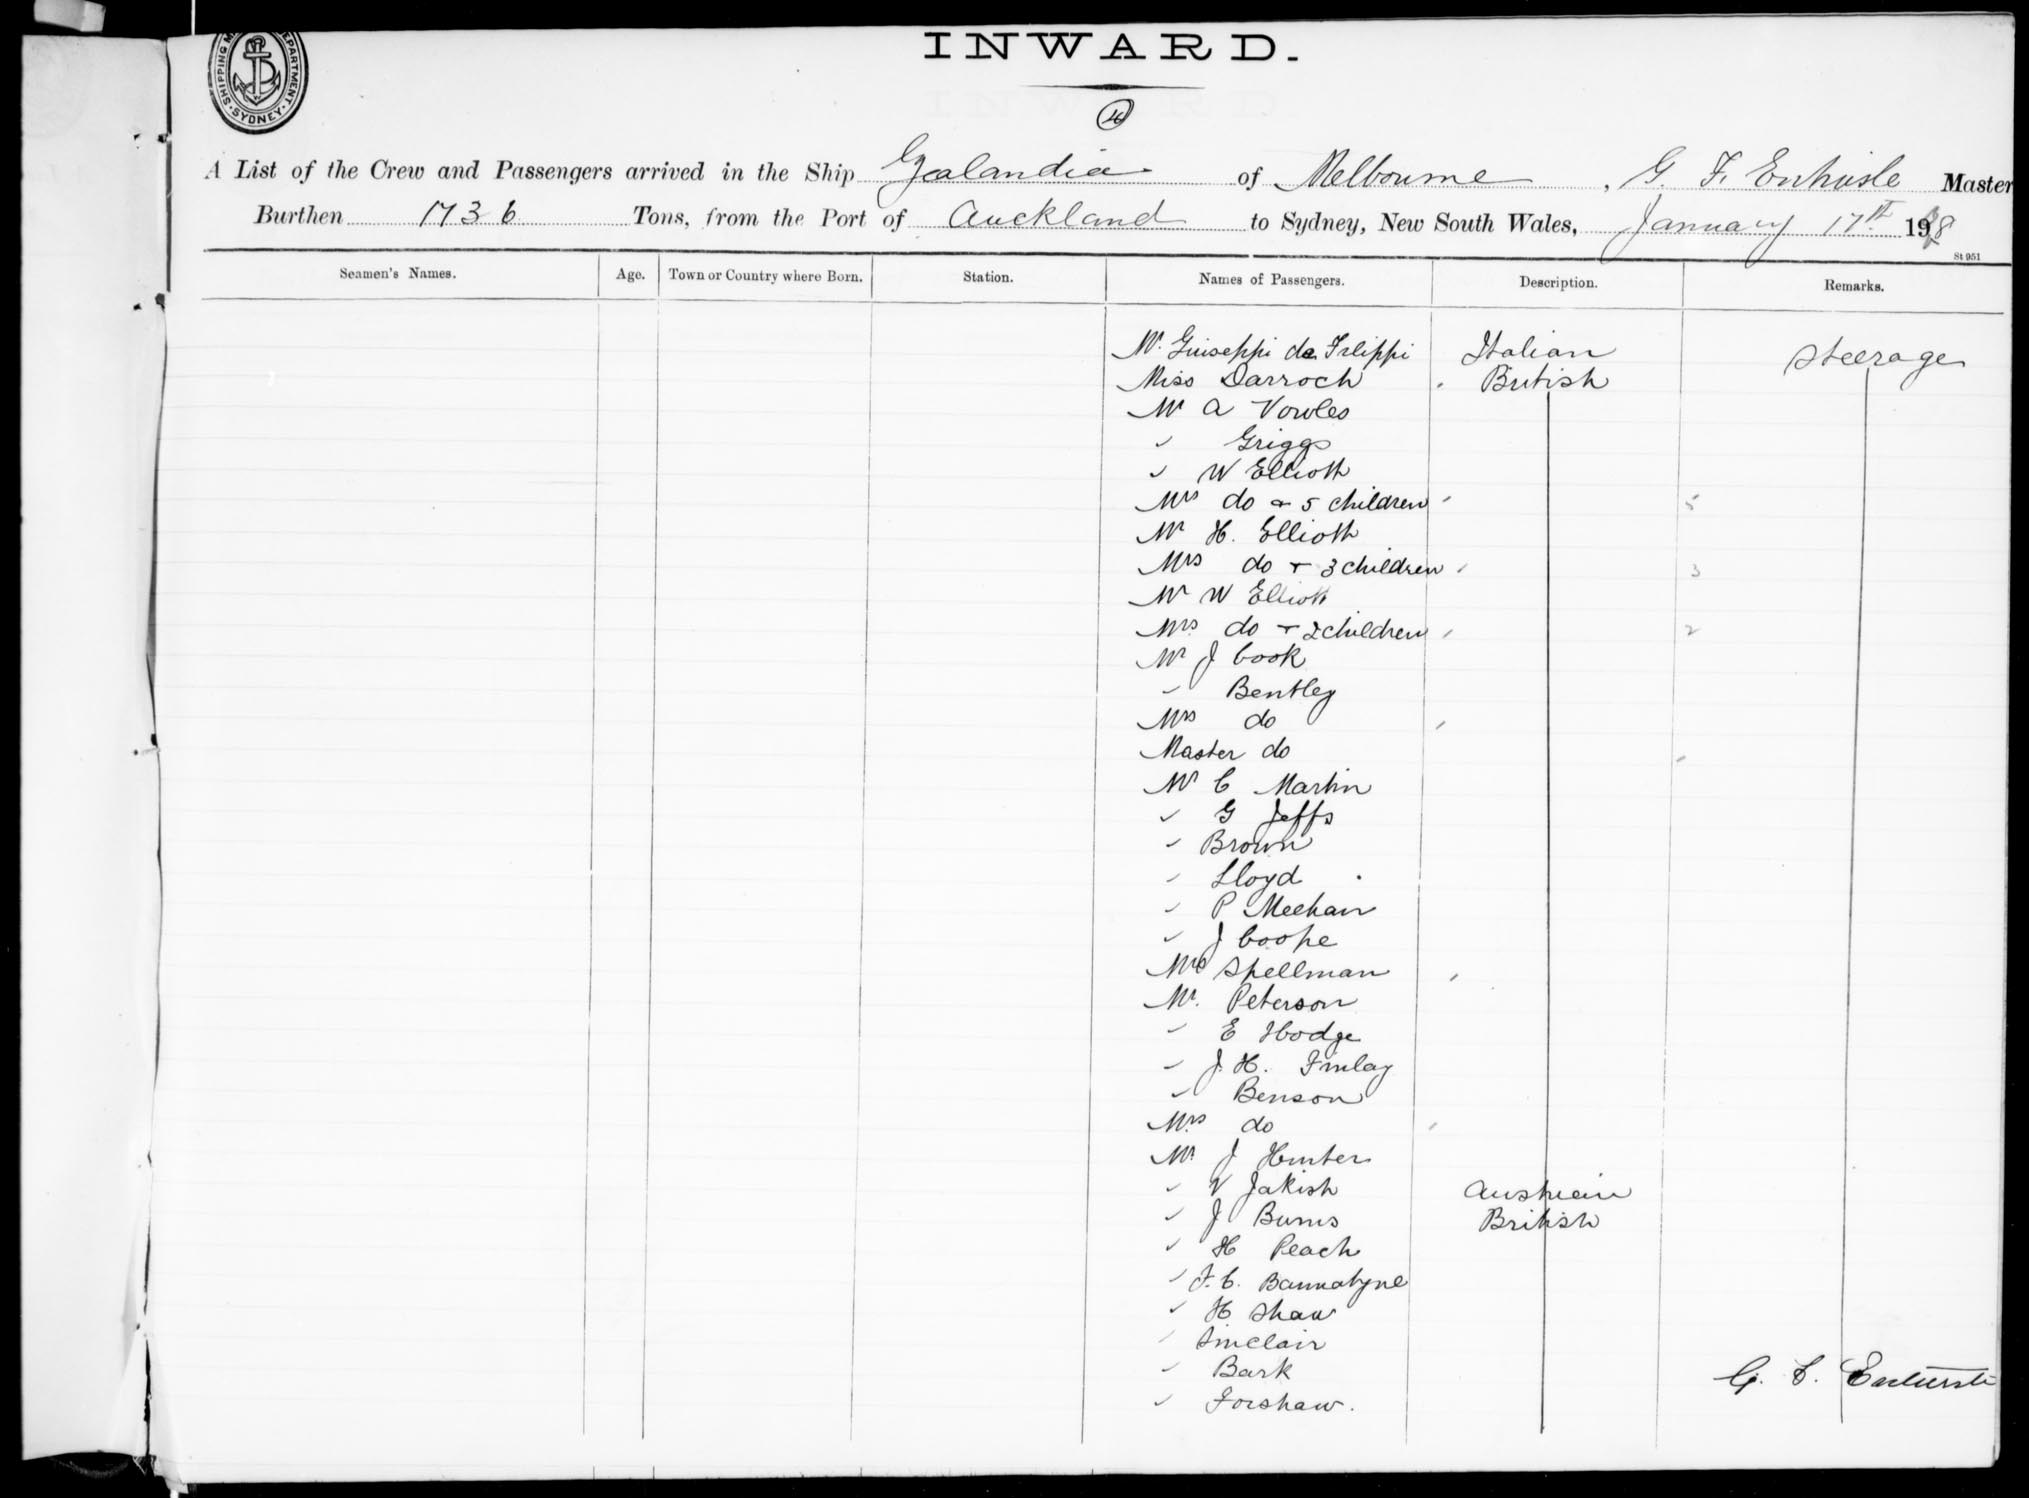 SHIPPING DEPARTMENT SYDNEY
INWARD.
A List of the Crew and Passengers arrived in the Ship Zealandia of Melbourne, G. F. Entwisle Master
Burthen 1736 Tons, from the Port of Auckland to Sydney, New South Wales, January 17th 19
St 951
Seamen's Names. Age. Town or Country where Born. Station. Names of Passengers. Description. Remarks.
Mr. Giuseppi de Filippi Italian Steerage
Miss Darroch British
Mr A Vowles
" Griggs
" W Elliott
Mrs do & 5 children 5
Mr H. Elliott
Mrs do + 3 children 3
Mr W Elliott
Mrs do + 2 children 2
Mr J Cook
" Bentley
Mrs do
Master do
Mr C Martin
" G Jeffs
" Brown
" Lloyd
" P Meehan
" J Coope
Mrs Spellman
Mr. Peterson
" E Hodge
" J. H. Finlay
" Benson
Mrs do
Mr J Hunter
" V Jakish Austrian
" J Burns British
" H Peach
" F. C. Bannatyne
" H Shaw
" Sinclair
" Bark
" Forshaw.
G. F. Entwisle